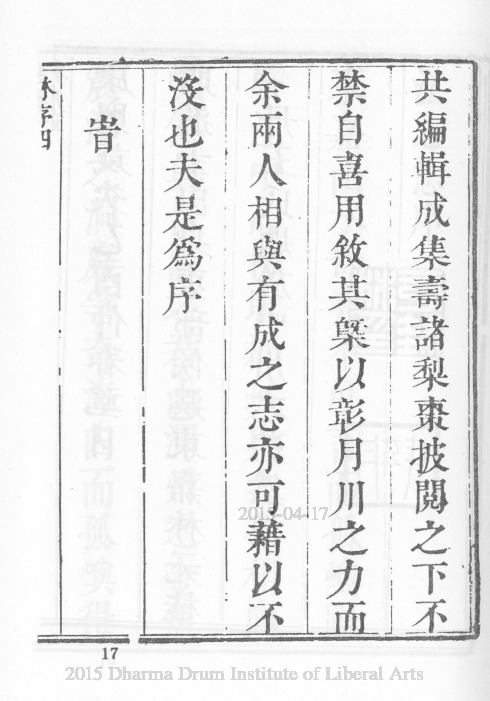 共編輯成集壽諸梨棗披閱之下不
禁自喜用敘其槩以彰月川之力而
余兩人相與有成之志亦可藉以不
沒也夫是爲序
旹
林序四
17
2015-04-17
2015 Dharma Drum Institute of Liberal Arts